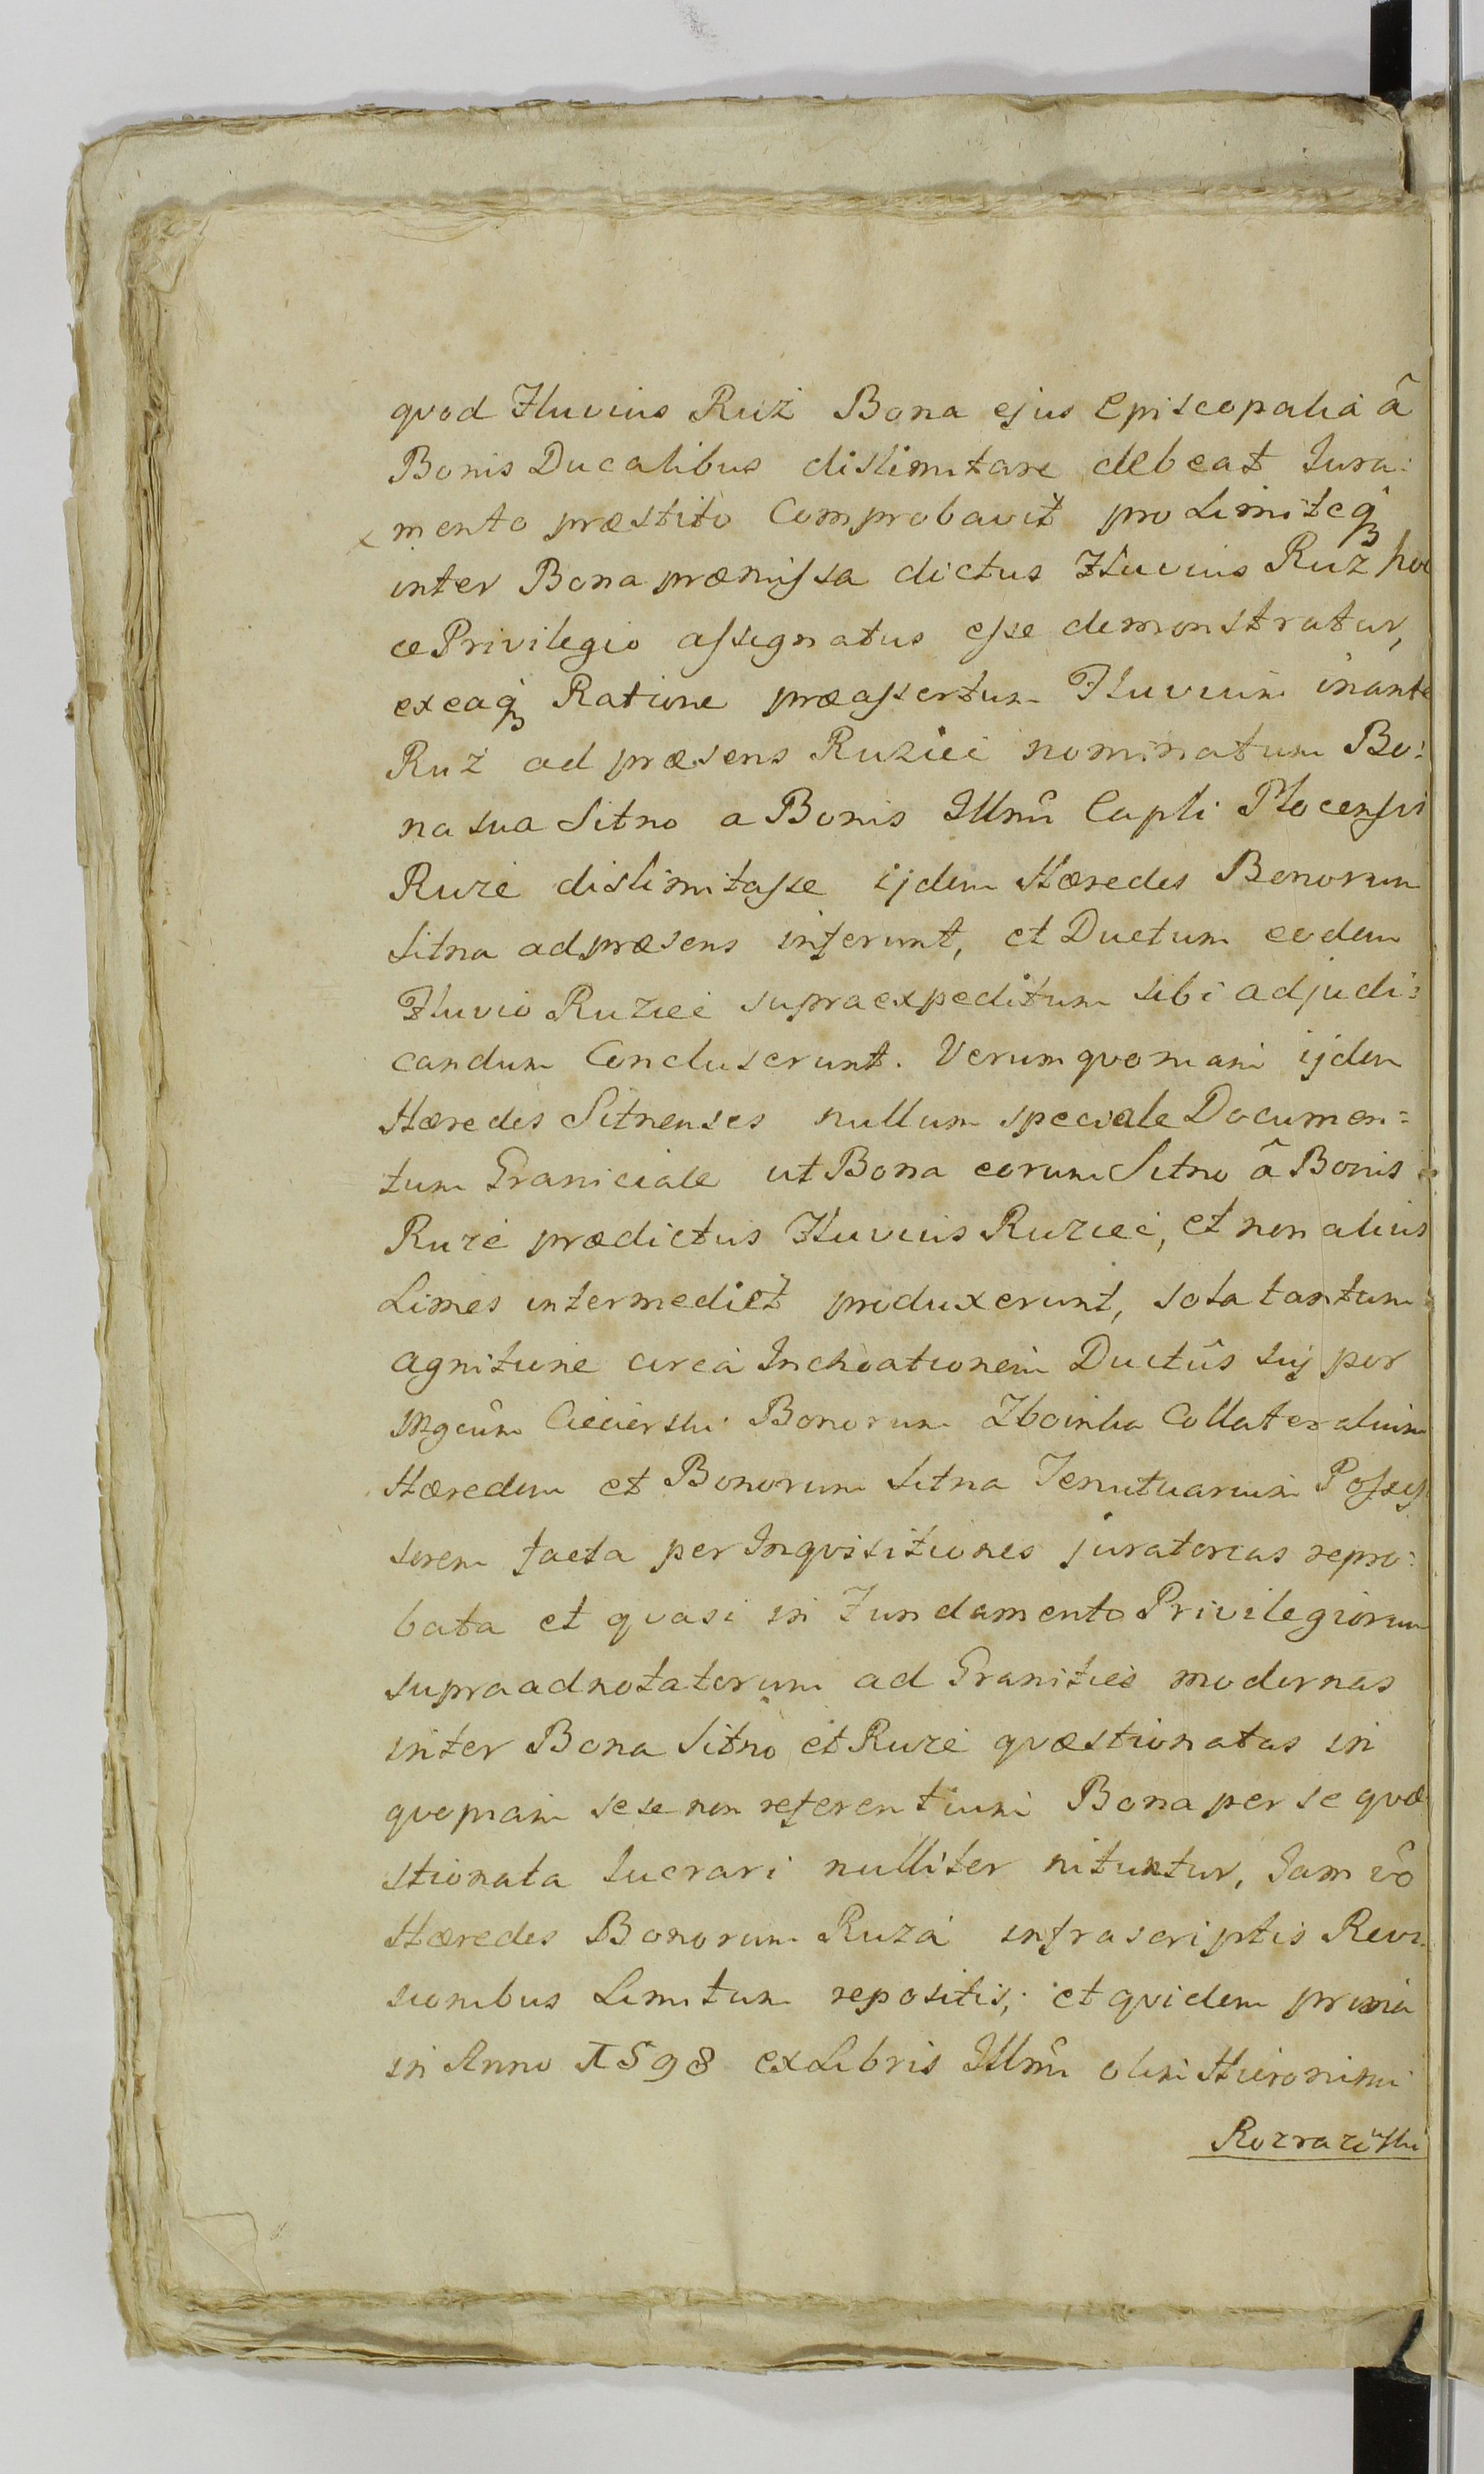 quod Fluvius Ruż Bona ejus Episcopalia â
Bonis Ducalibus dislimitare debeat Jura:
mento præstito Comprobavit pro Limiteq
inter Bona præmissa dictus Fluvius Ruż hoc
ce Privilegio assignatus esse demonstratur,
ex eaq Ratione præassertum Fluvium inante
Ruż ad præsens Ruziec nominatum Bo:
na sua Sitno a Bonis Illmi Capli Plocensis
Ruze dislimitasse ijdem Hæredes Bonorum
Sitna ad præsens inferunt, et Ductum eodem
Fluvio Ruziec supra expeditum sibi adjudi:
candum Concluserunt. Verum quoniam ijdem
Hæredes Sitnenses nullum speciale Documen:
tum Graniciale ut Bona eorum Sitno â Bonis
Ruze prædictus Fluvius Ruziec, et non alius
Limes intermediet produxerunt, sola tantum
agnitione circa Inchoationem Ductûs sui per
Mgcum Ciecierski Bonorum Zboinka Collateralium
Hæredem et Bonorum Sitna Tenutuarium Posses
sorem facta per Inquisitiones juratorias repro:
bata et quasi in Fundamento Privilegiorum
supra adnotatorum ad Granities modernas
inter Bona Sitno et Ruze quæstionatas in
quopiam sese non referentium Bona per se quæ
stionata lucrari nulliter nituntur, Jam vo
Hæredes Bonorum Ruza infrascriptis Revi
sionibus Limitum repositis; et quidem prima
in Anno 1598 ex Libris Illmi olim Hieronimi
Rozrażewski